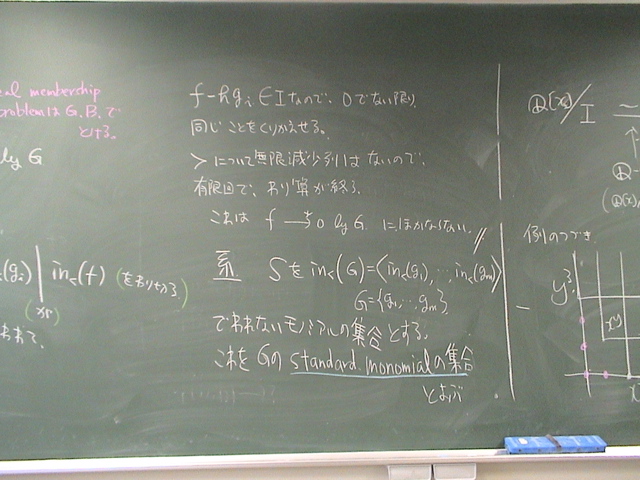 eal membership
problemは G.B.で
とける。
by G
(gᵢ) | in<(f)
をわりきる
われる、
f−hgᵢ ∈ I なので、0でない限り
同じことをくりかえせる。
> について無限減少列はないので、
有限回で、わり算が終る。
これは f → 0 by G にほかならない。 //
系. Sを in<(G)=⟨in<(g₁), ⋯, in<(gₘ)⟩
G={g₁, ⋯, gₘ}
でわれないモノミアルの集合とする。
これをGの standard monomialの集合
とよぶ
Q[x]/I ≃
↑
Q
(Q[x]/
例のつづき
y³
xy